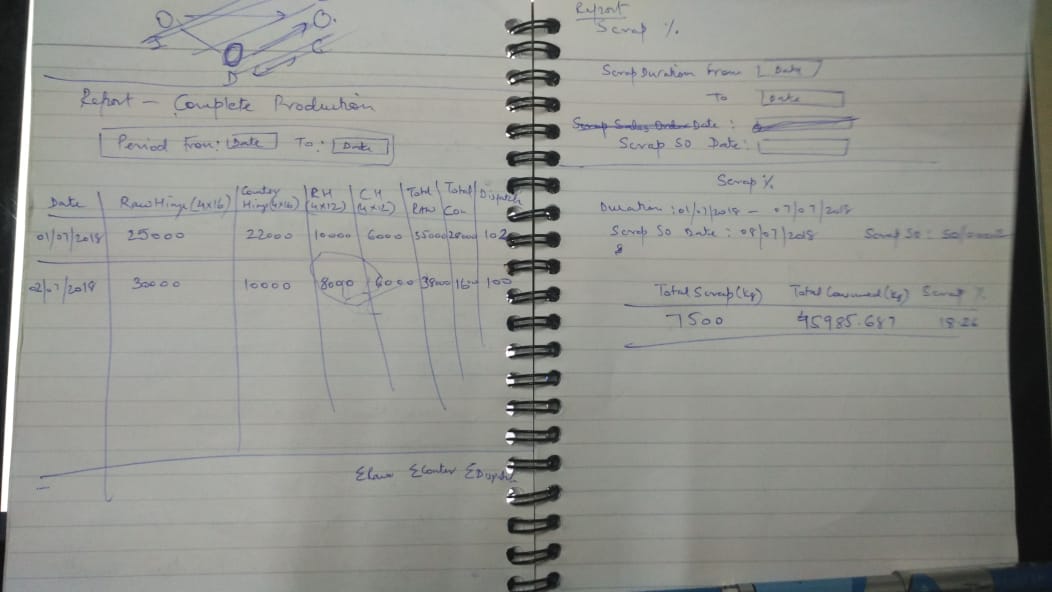 O O.
I C
D
Report – Complete Production
Period From: Date To: Date
Date Raw Hinge (4x16) Counter Hing (4x16) R.H (4x12) C.H (4x12) Total RAW Total Con Dispatch
01/07/2018 25000 22000 10000 6000 35000 28000 102
02/07/2018 30000 10000 8000 6000 100
ΣRaw ΣCounter
Report
Scrap %
Scrap Duration From Date
To Date
Date :
Scrap SO Date :
Scrap %
Duration : 01/07/2018 – 07/07/2018
Scrap SO Date : 08/07/2018 Scrap SO :
Total Scrap (kg) Total Consumed (kg) Scrap %
7500 45985.687 18.26